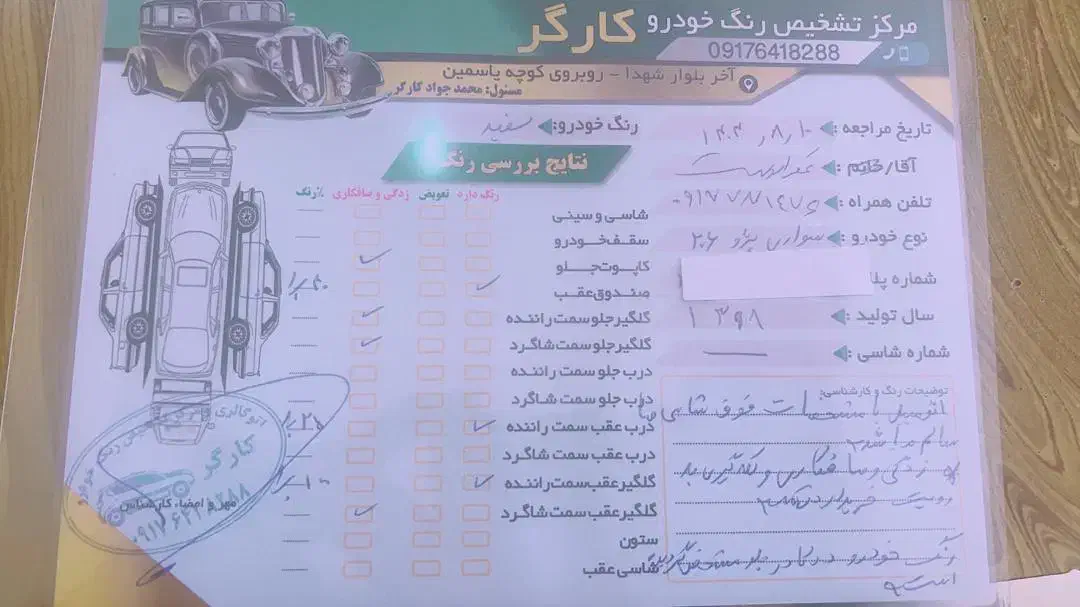 مرکز تشخیص رنگ خودرو کارگر
09176418288
آخر بلوار شهدا - روبروی کوچه یاسمین
مسئول: محمد جواد کارگر
تاریخ مراجعه: ۱۴۰۴/۸/۱۰
رنگ خودرو: سفید
آقا/خانم:
تلفن همراه:
نوع خودرو: سواری پژو ۲۰۶
شماره پلا
سال تولید: ۱۳۹۸
شماره شاسی: —
نتایج بررسی رنگ
رنگ دارد تعویض زدگی و صافکاری ٪رنگ
شاسی و سینی
سقف خودرو
کاپوت جلو ✓
صندوق عقب ✓
گلگیر جلو سمت راننده ✓
گلگیر جلو سمت شاگرد ✓
درب جلو سمت راننده
درب جلو سمت شاگرد
درب عقب سمت راننده ✓ ٪۲۰
درب عقب سمت شاگرد
گلگیر عقب سمت راننده ✓ ٪۱۰
گلگیر عقب سمت شاگرد ✓
ستون
شاسی عقب
توضیحات رنگ و کارشناسی:
اتومبیل با مشخصات فوق شاسی ها
سالم میباشد
زدگی و صافکاری و لکه گیری به
رویت خریدار
رنگ خودرو در کادر جلو مشخص گردیده
است
اتوگالری
کارگر
مهر و امضاء کارشناس